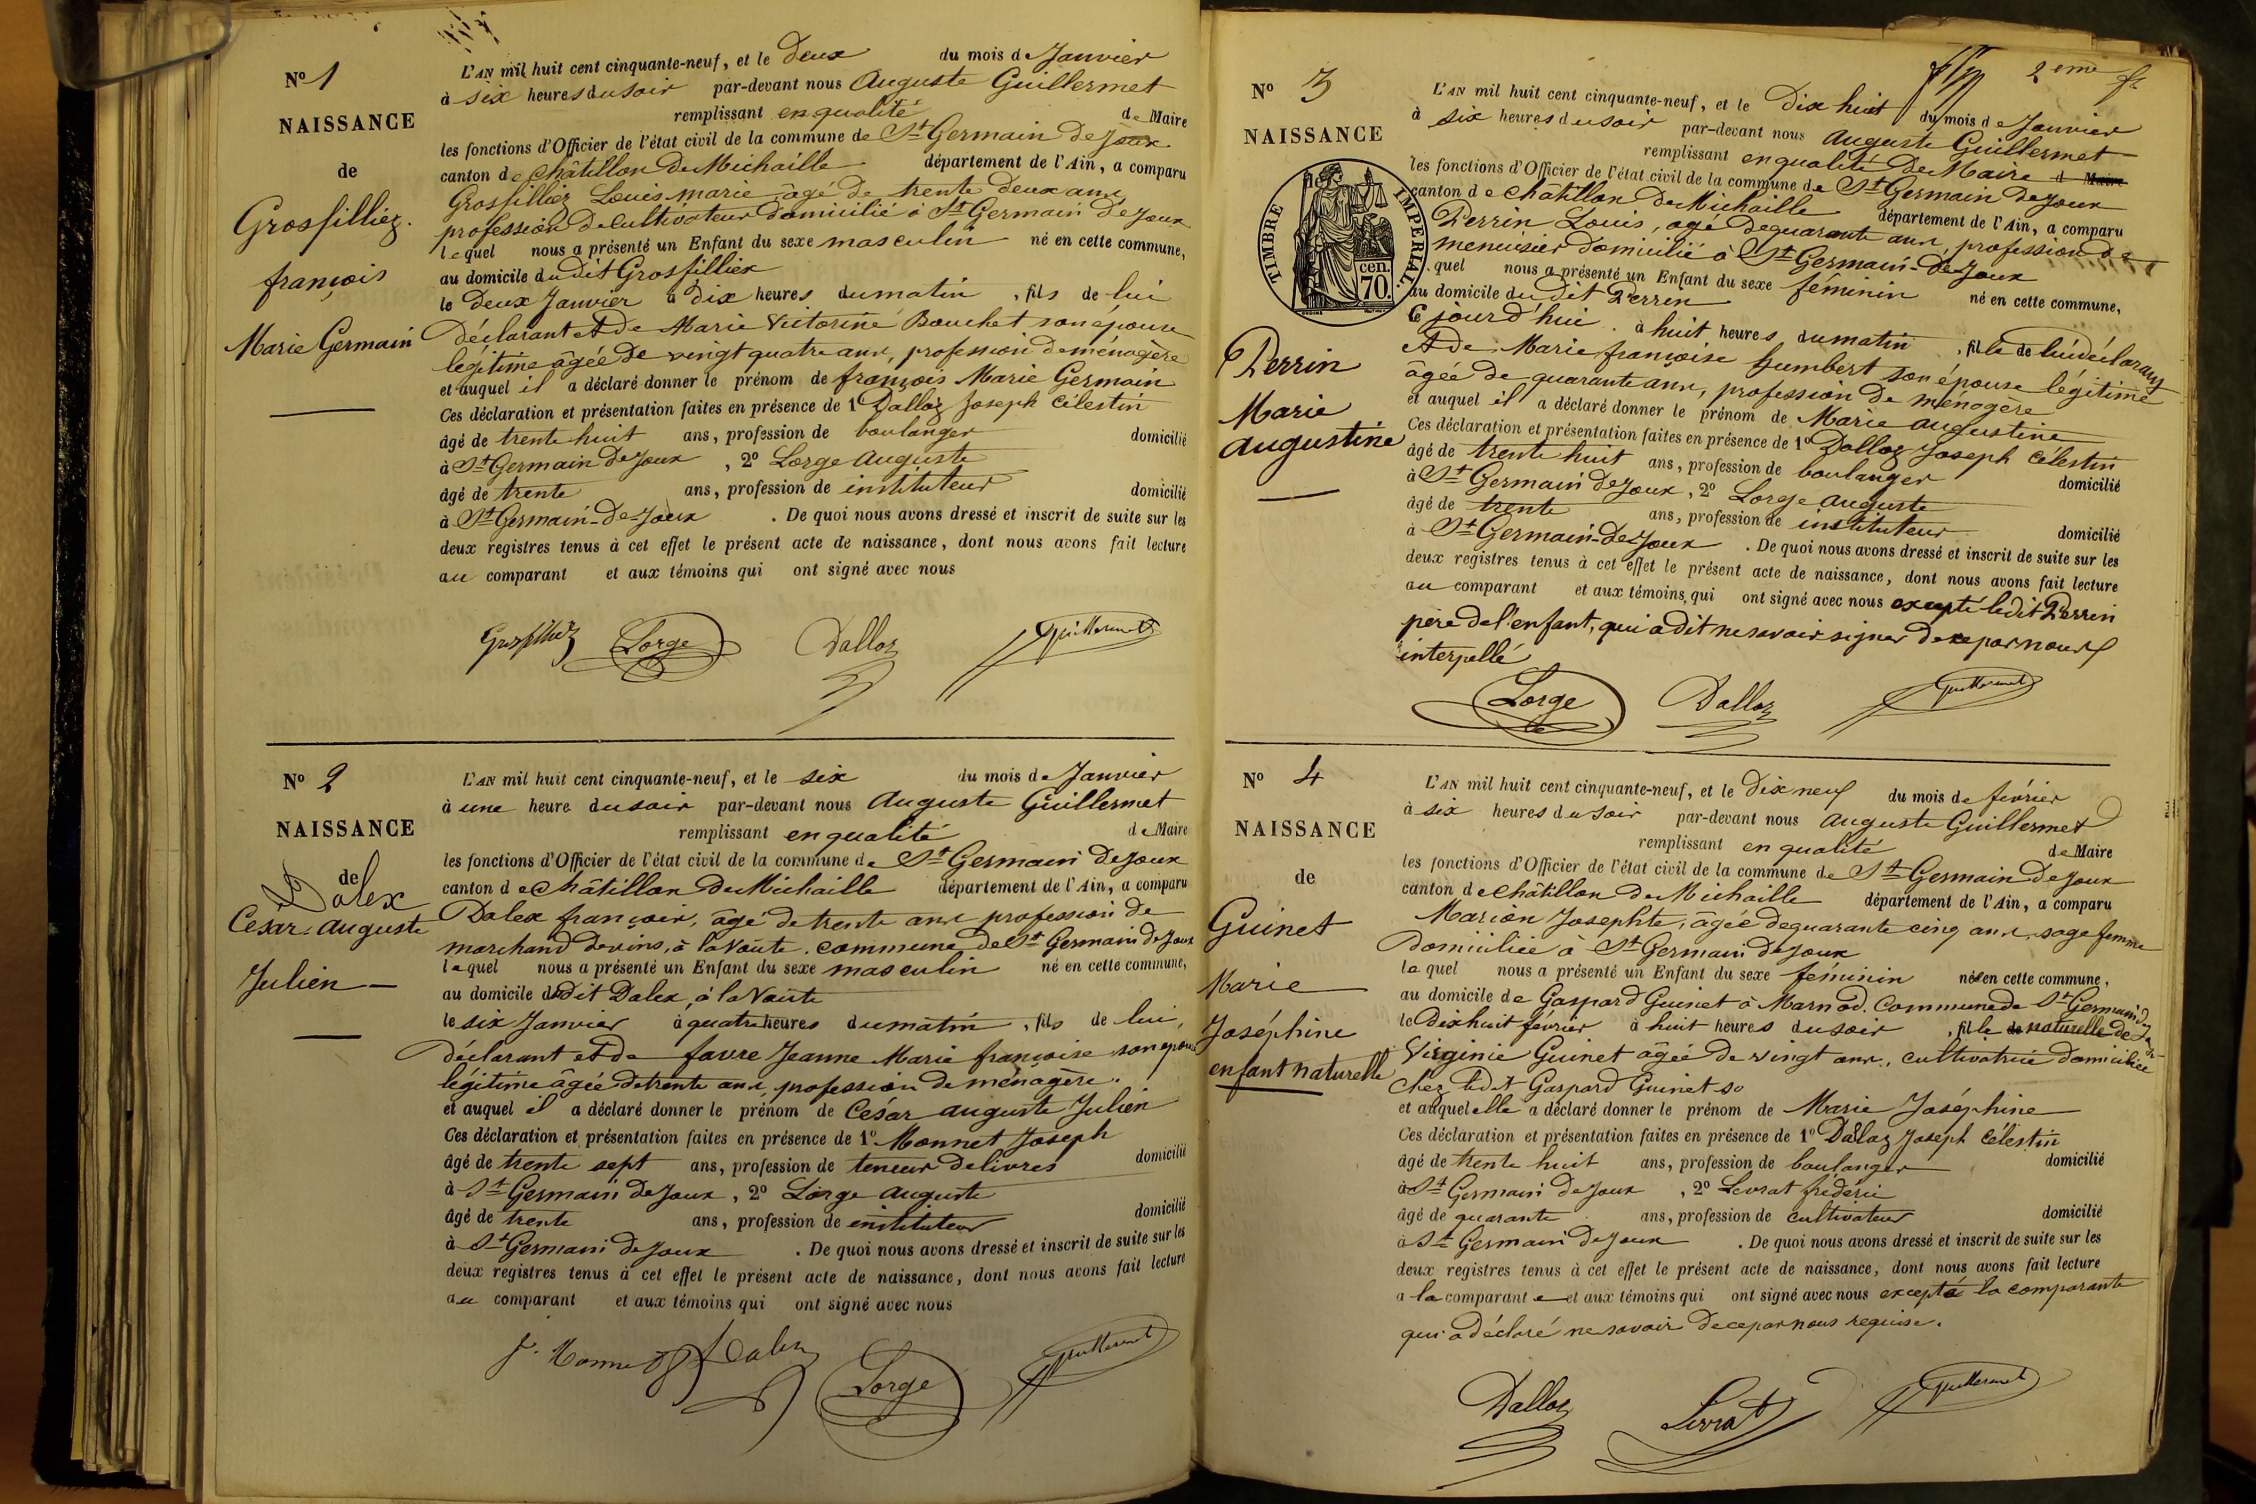 No 1
NAISSANCE
de
Grosfilliez.
françois
Marie Germain
L'AN mil huit cent cinquante-neuf, et le Deux du mois de Janvier
à six heures du soir par-devant nous Auguste Guillermet
remplissant en qualité de Maire
les fonctions d'Officier de l'état civil de la commune de St Germain De Joux
canton de Châtillon De Michaille département de l'Ain, a comparu
Grosfilliez Louis marie âgé De trente deux ans
profession De Cultivateur domicilié à St Germain De Joux
lequel nous a présenté un Enfant du sexe masculin né en cette commune,
au domicile du dit Grosfilliex
le Deux Janvier à dix heures du matin , fils de lui
Déclarant et de Marie Victorine Bouchet son épouse
légitime âgée De vingt quatre ans, profession De ménagère
et auquel il a déclaré donner le prénom de françois Marie Germain
Ces déclaration et présentation faites en présence de 1 Dalloz Joseph Célestin
âgé de trente huit ans, profession de boulanger domicilié
à St Germain De Joux , 2o Lorge Auguste
âgé de trente ans, profession de instituteur domicilié
à St Germain-De-Joux . De quoi nous avons dressé et inscrit de suite sur les
deux registres tenus à cet effet le présent acte de naissance, dont nous avons fait lecture
au comparant et aux témoins qui ont signé avec nous
Grosfilliez Lorge Dalloz Guillermet
No 2
NAISSANCE
de
Dalex
César. auguste
Julien
L'AN mil huit cent cinquante-neuf, et le six du mois de Janvier
à une heure du soir par-devant nous Auguste Guillermet
remplissant en qualité de Maire
les fonctions d'Officier de l'état civil de la commune de St Germain De Joux
canton de Châtillon De Michaille département de l'Ain, a comparu
Dalex françois, âgé de trente ans profession de
marchand De vins, à la Voute. commune de St Germain De Joux
lequel nous a présenté un Enfant du sexe masculin né en cette commune,
au domicile dudit Dalex, à la Voute
le six Janvier à quatre heures du matin , fils de lui,
déclarant et de favre Jeanne Marie françoise son épouse
légitime âgée de trente ans, profession de ménagère.
et auquel il a déclaré donner le prénom de César auguste Julien
Ces déclaration et présentation faites en présence de 1o Monnet Joseph
âgé de trente sept ans, profession de teneur de livres domicilié
à St Germain De Joux , 2o Lorge Auguste
âgé de trente ans, profession de instituteur domicilié
à St Germain De Joux . De quoi nous avons dressé et inscrit de suite sur les
deux registres tenus à cet effet le présent acte de naissance, dont nous avons fait lecture
au comparant et aux témoins qui ont signé avec nous
J. Monnet Dalex Lorge Guillermet
2eme ft
No 3
NAISSANCE
TIMBRE IMPERIAL.
70 cen.
Perrin
Marie
augustine
L'AN mil huit cent cinquante-neuf, et le Dix huit du mois de Janvier
à six heures du soir par-devant nous Auguste Guillermet
remplissant en qualité De Maire d Maire
les fonctions d'Officier de l'état civil de la commune de St Germain De Joux
canton de Châtillon De Michaille département de l'Ain, a comparu
Perrin Louis, âgé De quarante ans, profession de
menuisier domicilié à St Germain-De-Joux
quel nous a présenté un Enfant du sexe féminin né en cette commune,
au domicile du Dit Perrin
Ce jourd'hui. à huit heures du matin , fille de lui déclarant
Et de Marie françoise humbert son épouse légitime
âgée de quarante ans, profession De ménagère
et auquel il a déclaré donner le prénom de Marie augustine
Ces déclaration et présentation faites en présence de 1o Dalloz Joseph Célestin
âgé de trente huit ans, profession de boulanger domicilié
à St Germain De Joux, 2o Lorge Auguste
âgé de trente ans, profession de instituteur domicilié
à St Germain-De-Joux . De quoi nous avons dressé et inscrit de suite sur les
deux registres tenus à cet effet le présent acte de naissance, dont nous avons fait lecture
au comparant et aux témoins, qui ont signé avec nous excepté ledit Perrin
père de l'enfant, qui a dit ne savoir signer de ce par nous
interpellé
Lorge Dalloz Guillermet
No 4
NAISSANCE
de
Guinet
Marie
Joséphine
enfant naturelle
L'AN mil huit cent cinquante-neuf, et le Dix neuf du mois de février
à six heures du soir par-devant nous Auguste Guillermet
remplissant en qualité de Maire
les fonctions d'Officier de l'état civil de la commune de St Germain De Joux
canton de Châtillon De Michaille département de l'Ain, a comparu
Marion Josephte, âgée de quarante cinq ans, sage femme
Domiciliée à St Germain De Joux
lequel nous a présenté un Enfant du sexe féminin née en cette commune,
au domicile de Gaspard Guinet à Marnod. Commune de St Germain de Joux
le Dix huit février à huit heures du soir , fille de naturelle de
Virginie Guinet âgée De vingt ans, cultivatrice domiciliée
chez ledit Gaspard Guinet
et auquel elle a déclaré donner le prénom de Marie Joséphine
Ces déclaration et présentation faites en présence de 1o Dalloz Joseph Célestin
âgé de trente huit ans, profession de boulanger domicilié
à St Germain De Joux , 2o Levrat frédéric
âgé de quarante ans, profession de cultivateur domicilié
à St Germain De Joux . De quoi nous avons dressé et inscrit de suite sur les
deux registres tenus à cet effet le présent acte de naissance, dont nous avons fait lecture
a la comparante et aux témoins qui ont signé avec nous excepté la comparante
qui a déclaré ne savoir De ce par nous requise.
Dalloz Levrat Guillermet